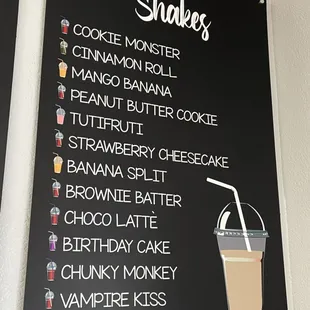 Shakes
COOKIE MONSTER
CINNAMON ROLL
MANGO BANANA
PEANUT BUTTER COOKIE
TUTIFRUTI
STRAWBERRY CHEESECAKE
BANANA SPLIT
BROWNIE BATTER
CHOCO LATTÈ
BIRTHDAY CAKE
CHUNKY MONKEY
VAMPIRE KISS